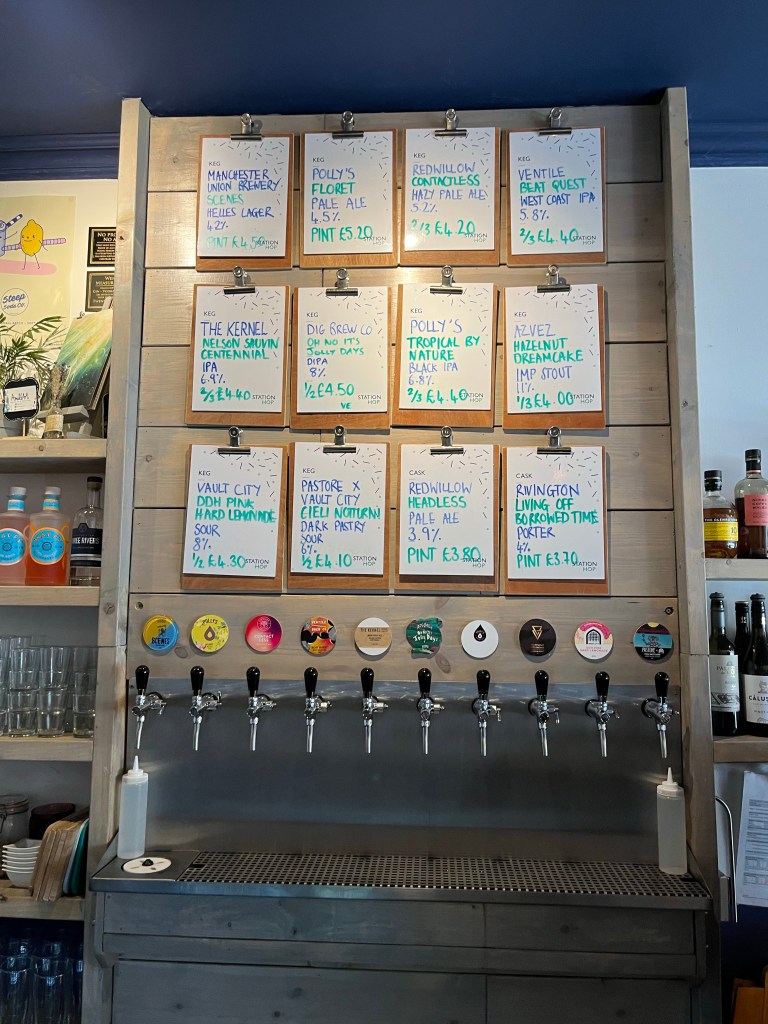 KEG
MANCHESTER
UNION BREWERY
SCENES
HELLES LAGER
4.2%
PINT £4.50
STATION
HOP
KEG
POLLY'S
FLORET
PALE ALE
4.5%
PINT £5.20
STATION
HOP
KEG
REDWILLOW
CONTACTLESS
HAZY PALE ALE
5.2%
2/3 £4.20
STATION
HOP
KEG
VENTILE
BEAT QUEST
WEST COAST IPA
5.8%
2/3 £4.40
STATION
HOP
KEG
THE KERNEL
NELSON SAUVIN
CENTENNIAL
IPA
6.9%
2/3 £4.40
STATION
HOP
KEG
DIG BREW CO
OH NO IT'S
JOLLY DAYS
DIPA
8%
1/2 £4.50
VE
STATION
HOP
KEG
POLLY'S
TROPICAL BY
NATURE
BLACK IPA
6.8%
2/3 £4.40
STATION
HOP
KEG
AZVEZ
HAZELNUT
DREAMCAKE
IMP STOUT
11%
1/3 £4.00
STATION
HOP
KEG
VAULT CITY
DDH PINK
HARD LEMONADE
SOUR
8%
1/2 £4.30
STATION
HOP
KEG
PASTORE X
VAULT CITY
CIELI NOTTURNI
DARK PASTRY
SOUR
6%
1/2 £4.10
STATION
HOP
CASK
REDWILLOW
HEADLESS
PALE ALE
3.9%
PINT £3.80
STATION
HOP
CASK
RIVINGTON
LIVING OFF
BORROWED TIME
PORTER
4%
PINT £3.70
STATION
HOP
Steep
Soda Co.
SCENES
POLLY'S
THE KERNEL